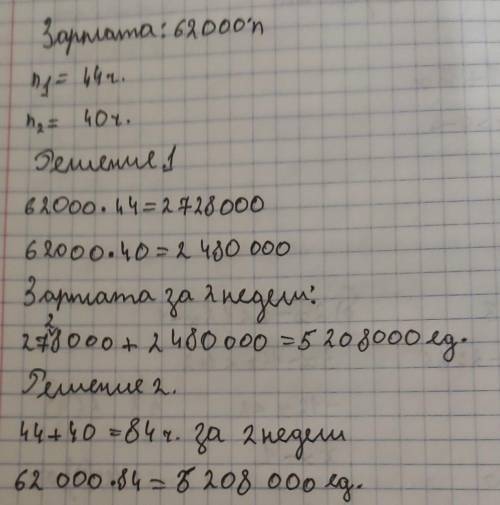 Зарплата: 62000·n
n1 = 44ч.
n2 = 40ч.
Решение 1
62000·44=2728000
62000·40=2 480 000
Зарплата за 2 недели:
2728000 + 2 480 000 = 5 208000 ед.
Решение 2.
44+40 = 84ч. за 2 недели
62 000·84 = 5 208 000 ед.